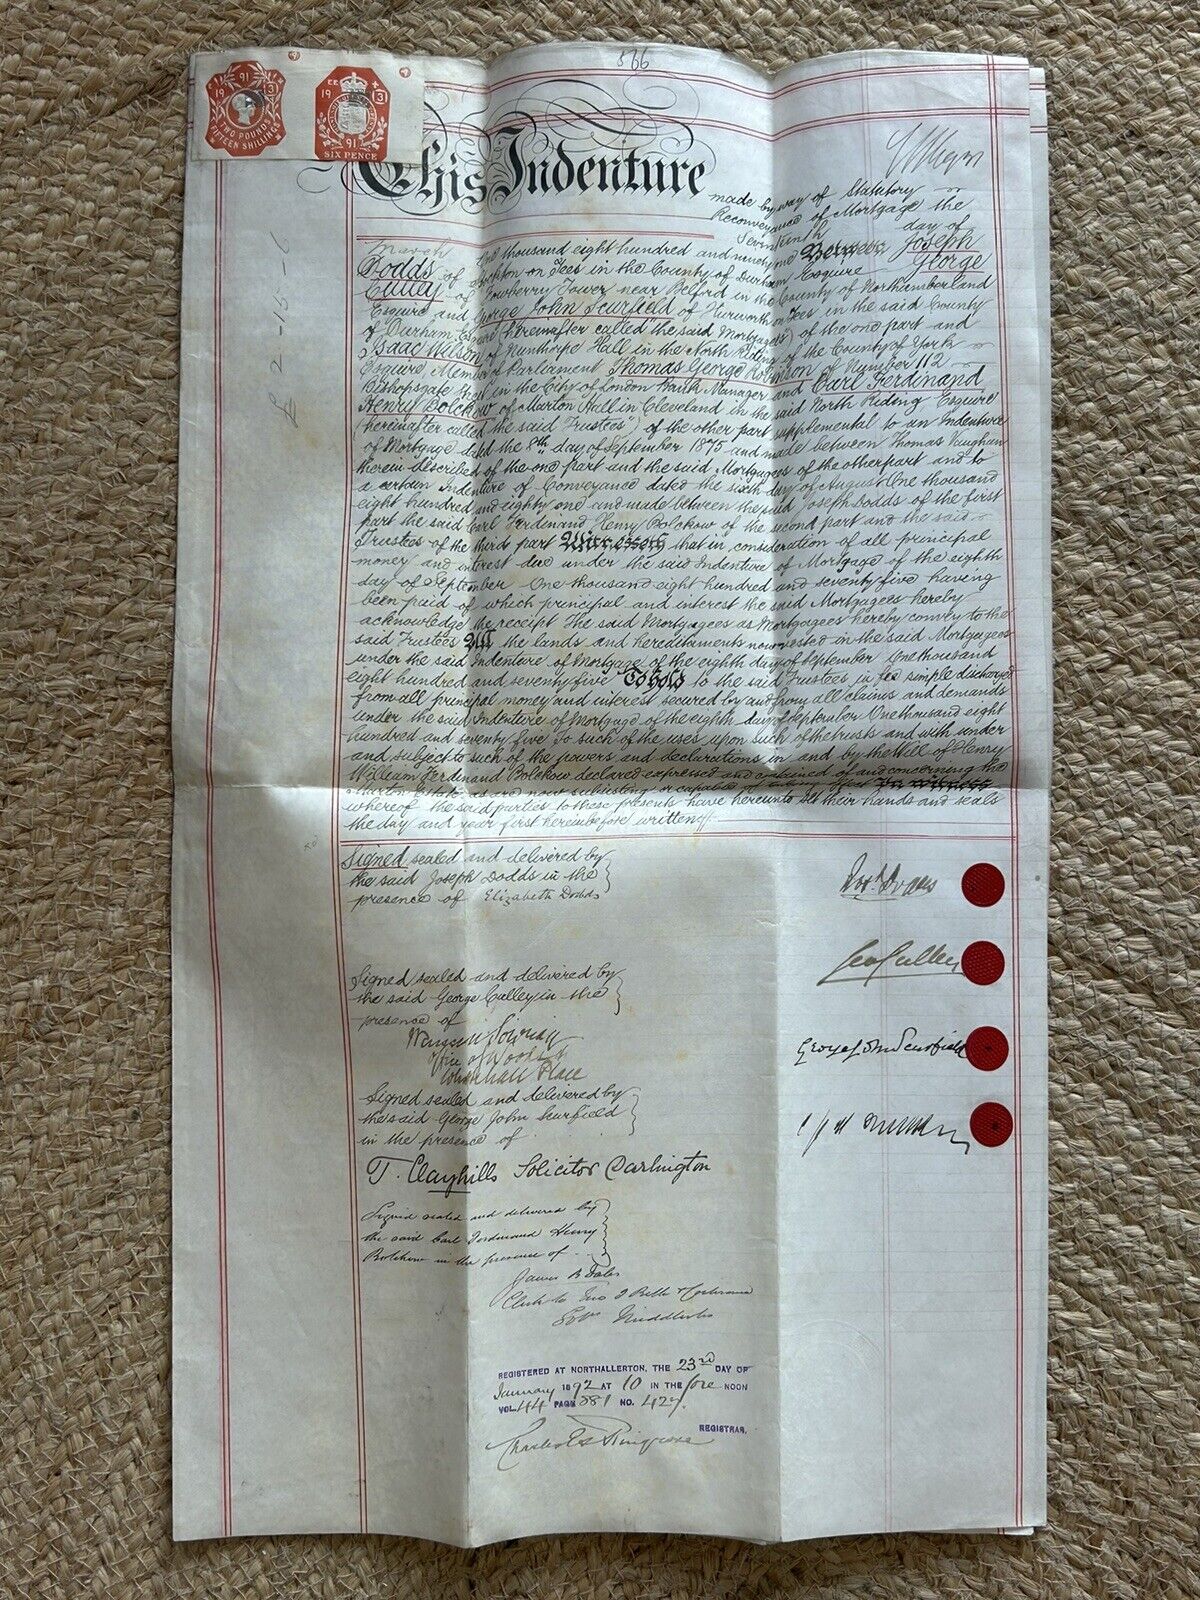 566
91
19 31
TWO POUNDS
FIFTEEN SHILLINGS
19 31
91
SIX PENCE
£2-15-6
This Indenture
made by way of Statutory
Reconveyance of Mortgage the
Seventeenth day of
March One thousand eight hundred and ninety one Between Joseph
Dodds of Stockton on Tees in the County of Durham Esquire George
Culley of Fowberry Tower near Belford in the County of Northumberland
Esquire and George John Scurfield of Hurworth on Tees in the said County
of Durham Esquire (hereinafter called "the said Mortgagees") of the one part and
Isaac Wilson of Nunthorpe Hall in the North Riding of the County of York
Esquire, Member of Parliament Thomas George Robinson of Number 112
Bishopsgate Street in the City of London Bank Manager and Carl Ferdinand
Henry Bolckow of Marton Hall in Cleveland in the said North Riding Esquire
(hereinafter called "the said Trustees") of the other part supplemental to an Indenture
of Mortgage dated the 8th day of September 1875 and made between Thomas Vaughan
therein described of the one part and the said Mortgagees of the other part and to
a certain Indenture of Conveyance dated the sixth day of August One thousand
eight hundred and eighty one and made between the said Joseph Dodds of the first
part the said Carl Ferdinand Henry Bolckow of the second part and the said
Trustees of the third part Witnesseth that in consideration of all principal
money and interest due under the said Indenture of Mortgage of the eighth
day of September One thousand eight hundred and seventy five having
been paid of which principal and interest the said Mortgagees hereby
acknowledge the receipt The said Mortgagees as Mortgagees hereby convey to the
said Trustees All the lands and hereditaments now vested in the said Mortgagees
under the said Indenture of Mortgage of the eighth day of September One thousand
eight hundred and seventy five To hold to the said Trustees in fee simple discharged
from all principal money and interest secured by and from all claims and demands
under the said Indenture of Mortgage of the eighth day of September One thousand eight
hundred and seventy five To such of the uses upon such of the trusts and with under
and subject to such of the powers and declarations in and by the Will of Henry
William Ferdinand Bolckow declared expressed and contained of and concerning the
Marton Estate as are now subsisting or capable of taking effect In witness
whereof the said parties to these presents have hereunto set their hands and seals
the day and year first hereinbefore written
Signed sealed and delivered by
the said Joseph Dodds in the
presence of Elizabeth Dodds
Jos. Dodds
Signed sealed and delivered by
the said George Culley in the
presence of
Geo Culley
Office of Woods
Whitehall Place
George John Scurfield
Signed sealed and delivered by
the said George John Scurfield
in the presence of
T. Clayhills Solicitor Darlington
Signed sealed and delivered by
the said Carl Ferdinand Henry
Bolckow in the presence of
James B Dales
Clerk to
Middlesbro
REGISTERED AT NORTHALLERTON, THE 23rd DAY OF
January 1892 AT 10 IN THE fore NOON
VOL. 44 PAGE 881 NO. 427.
REGISTRAR.